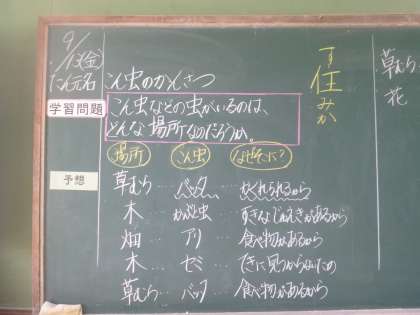 9/13(金)
たん元名 こん虫のかんさつ
学習問題
こん虫などの虫がいるのは、
どんな場所なのだろうか。
場所 こん虫 なぜそこに?
予想
草むら…バッタ…かくれられるから
木…かぶと虫…すきなじゅえきがあるから
畑…アリ…食べ物があるから
木…セミ…てきに見つからないため
草むら…バッタ…食べ物があるから
す
住みか
草むら
花